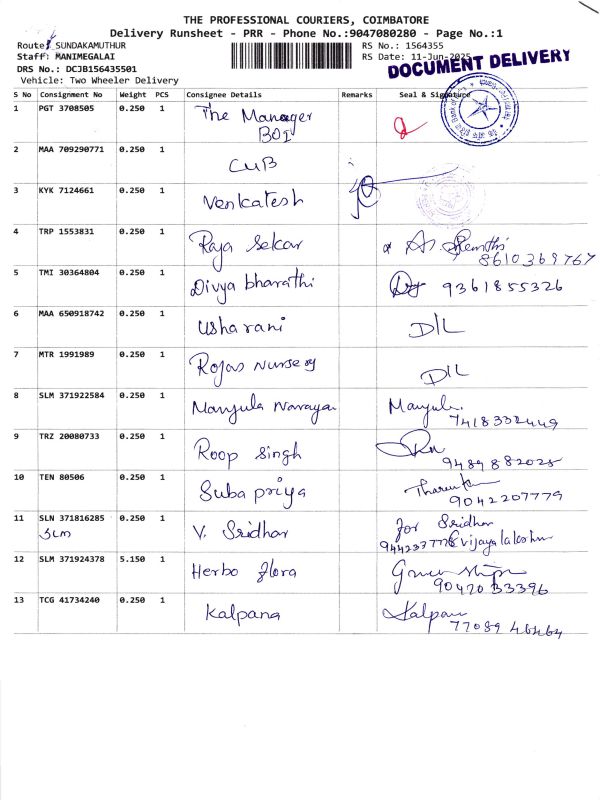 THE PROFESSIONAL COURIERS, COIMBATORE
Delivery Runsheet - PRR - Phone No.:9047080280 - Page No.:1
Route: SUNDAKAMUTHUR RS No.: 1564355
Staff: MANIMEGALAI RS Date: 11-Jun-2025
DOCUMENT DELIVERY
DRS No.: DCJB156435501
Vehicle: Two Wheeler Delivery
S No Consignment No Weight PCS Consignee Details Remarks Seal & Signature
1 PGT 3708505 0.250 1 The Manager
BOI
2 MAA 709290771 0.250 1 CUB
3 KYK 7124661 0.250 1 Venkatesh
4 TRP 1553831 0.250 1 Raja Sekar
8610369767
5 TMI 30364804 0.250 1 Divya bharathi 9361855326
6 MAA 650918742 0.250 1 Usharani D/L
7 MTR 1991989 0.250 1 Rojas Nursery D/L
8 SLM 371922584 0.250 1 Manjula Narayan Manjula
7418332449
9 TRZ 20080733 0.250 1 Roop Singh
9489882025
10 TEN 80506 0.250 1 Suba priya
9042207779
11 SLN 371816285 0.250 1 V. Sridhar for Sridhar
SLM vijayalakshmi
12 SLM 371924378 5.150 1 Herbo flora
9042033396
13 TCG 41734240 0.250 1 Kalpana Kalpana
77089 46464